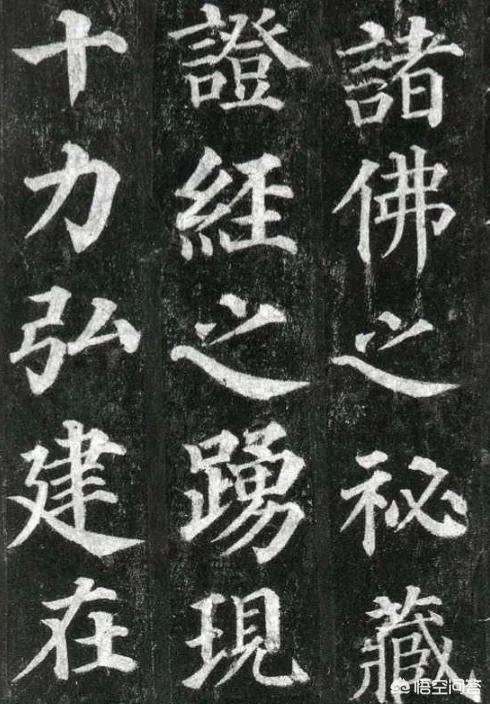 諸佛之祕藏
證經之踴現
十力弘建在
悟空问答